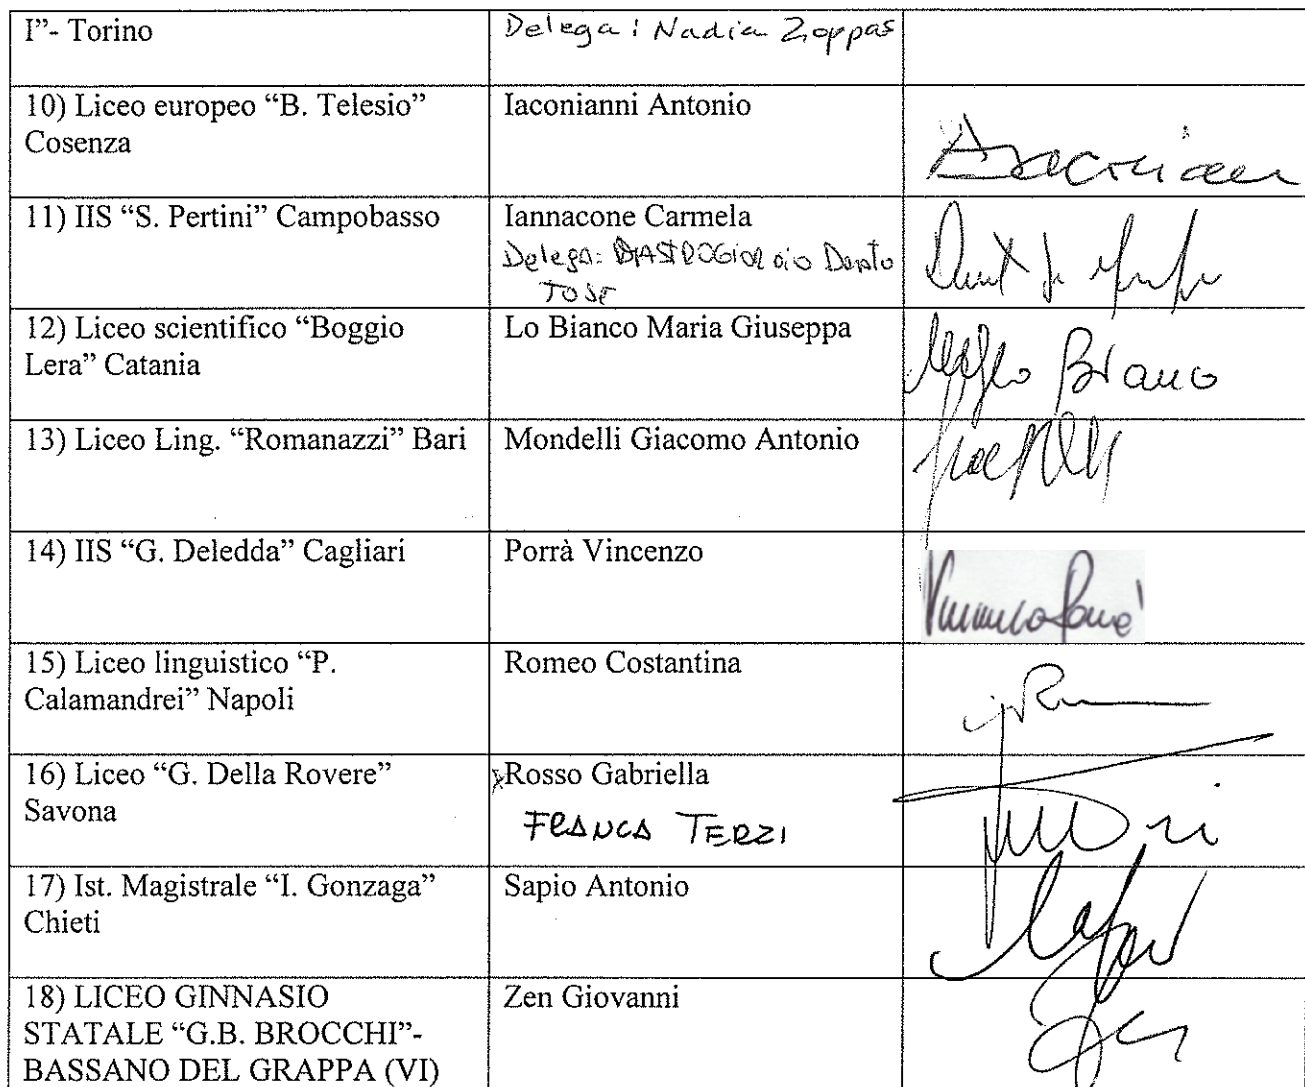 I”- Torino
Delega: Nadia Zoppas
10) Liceo europeo “B. Telesio”
Cosenza
Iaconianni Antonio
11) IIS “S. Pertini” Campobasso
Iannacone Carmela
Delega:
12) Liceo scientifico “Boggio
Lera” Catania
Lo Bianco Maria Giuseppa
Bianco
13) Liceo Ling. “Romanazzi” Bari
Mondelli Giacomo Antonio
14) IIS “G. Deledda” Cagliari
Porrà Vincenzo
15) Liceo linguistico “P.
Calamandrei” Napoli
Romeo Costantina
16) Liceo “G. Della Rovere”
Savona
Rosso Gabriella
FRANCA TERZI
17) Ist. Magistrale “I. Gonzaga”
Chieti
Sapio Antonio
18) LICEO GINNASIO
STATALE “G.B. BROCCHI”-
BASSANO DEL GRAPPA (VI)
Zen Giovanni